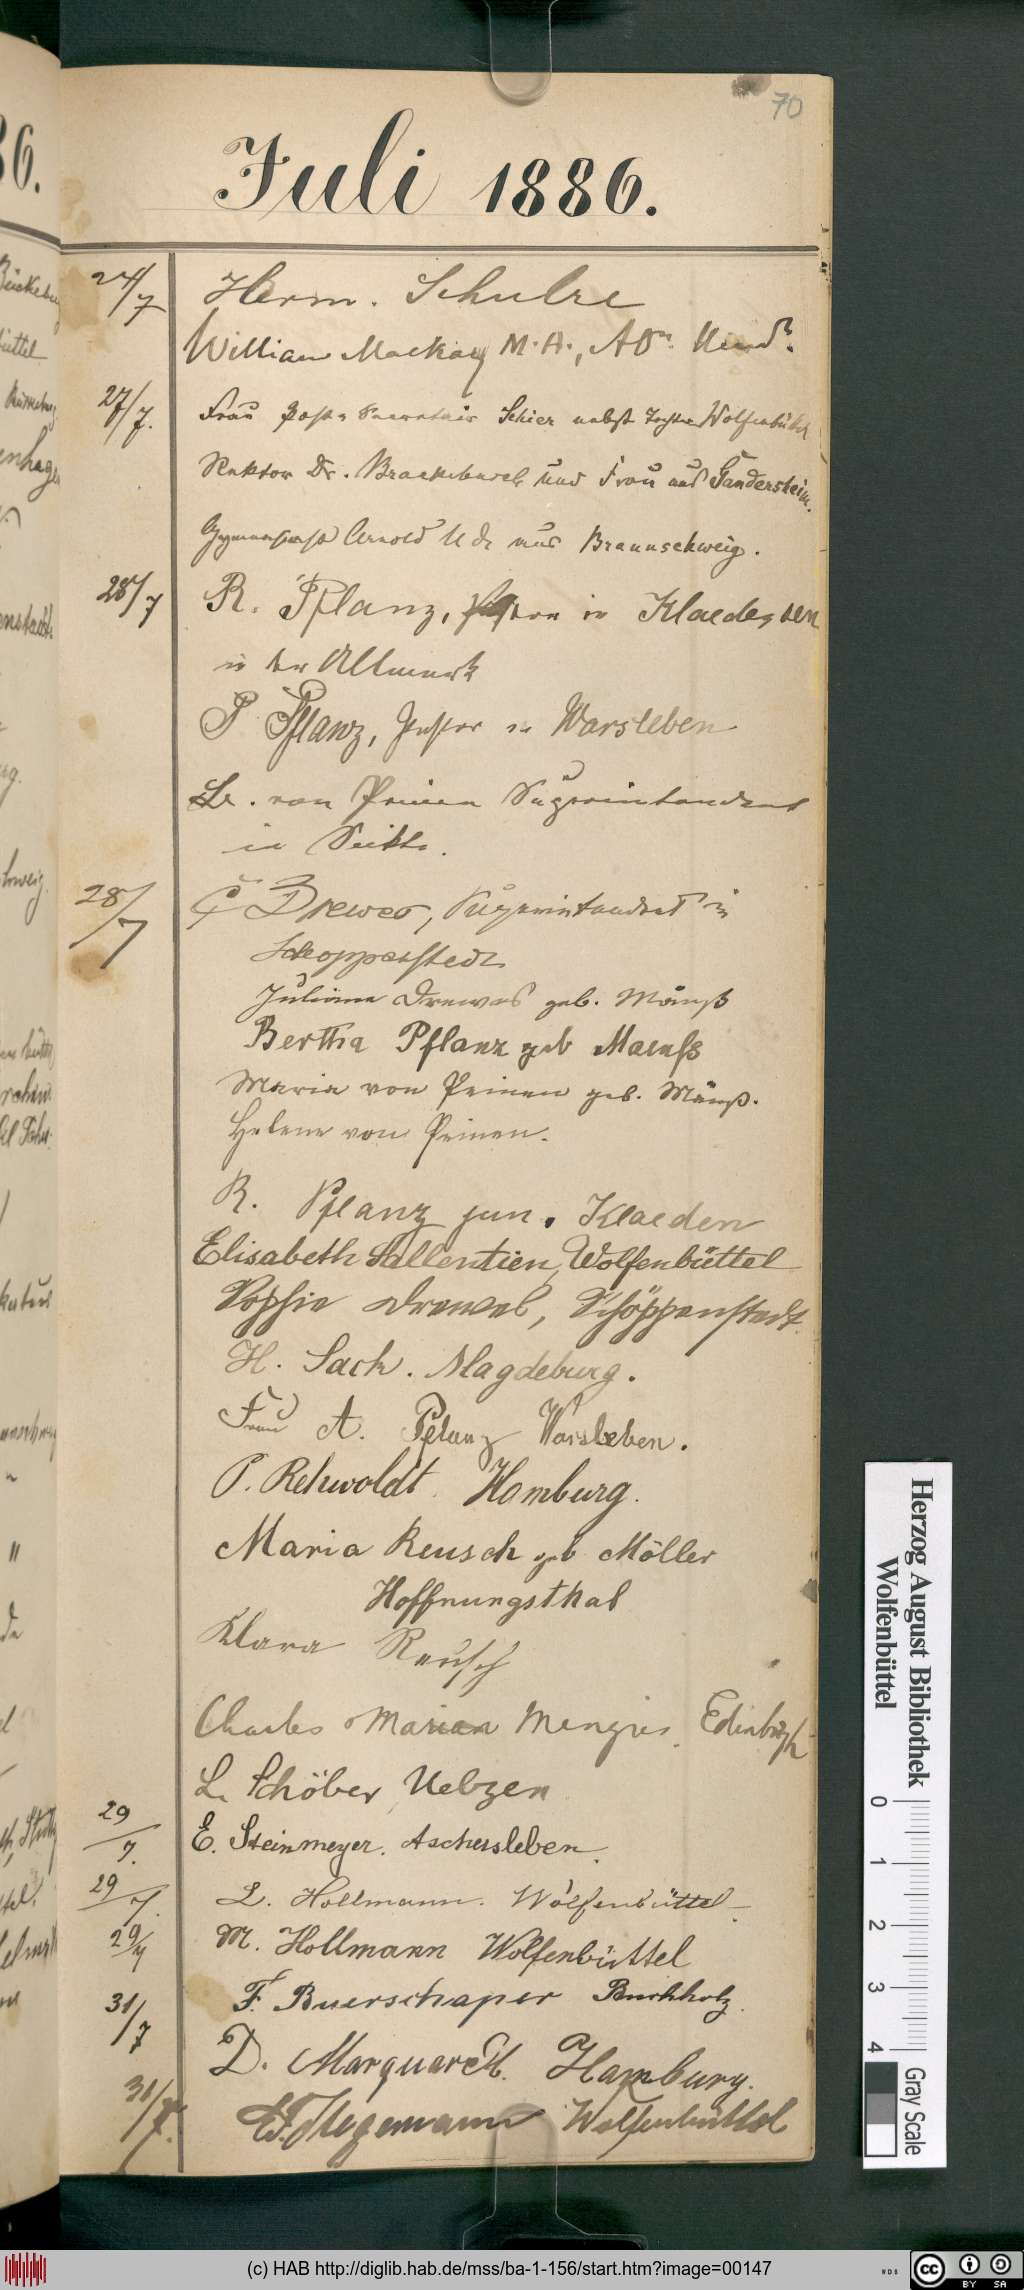 70
Juli 1886.
24/7 Herm. Schulze
William Mackay M.A.,
27/7. Frau Post-Secretair Schier nebst Tochter Wolfenbüttel
Rektor Dr. Brackebusch und Frau aus Gandersheim.
Gymnasiast Arnold aus Braunschweig.
28/7 R. Pflanz, Pastor in Klaeden
in der Altmark
P Pflanz, Pastor in Warsleben
von Prinen Superintendent
in
28/7 Drewes, Superintendent in
Schoppenstedt
Juliane Drewes geb. Mänß
Bertha Pflanz geb Maenß
Maria von Prinen geb. Mänß.
Helene von Prinen.
R. Pflanz jun. Klaeden
Elisabeth Sallentien, Wolfenbüttel
Sophie Drewes, Schöppenstedt.
H. Sack. Magdeburg.
Frau A. Pflanz Warsleben.
P. Rehwoldt. Hamburg.
Maria Reusch geb Möller
Hoffnungsthal
Klara Reusch
Charles Menzies, Edinburgh
L. Schöber, Uelzen
29/7. E. Steinmeyer. Aschersleben.
29/7. L. Hollmann. Wolfenbüttel
29/7 M. Hollmann Wolfenbüttel
31/7 F. Buerschaper Buchholz.
D. Marquardt. Hamburg.
31/7. Stegemann Wolfenbüttel
Herzog August Bibliothek
Wolfenbüttel
0 1 2 3 4
Gray Scale
(c) HAB http://diglib.hab.de/mss/ba-1-156/start.htm?image=00147
cc BY SA